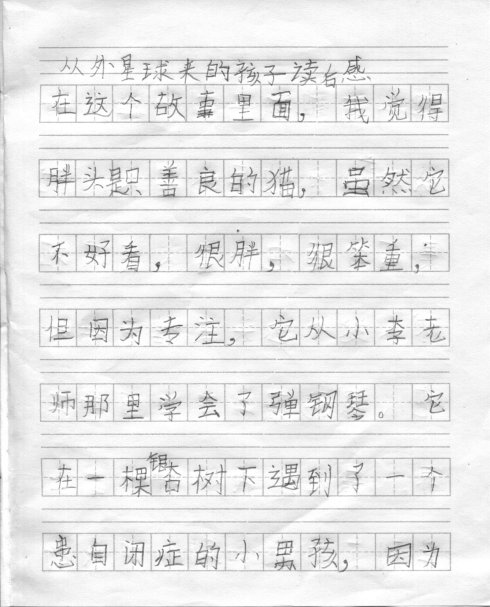 从外星球来的孩子读后感
在这个故事里面，我觉得
胖头是只善良的猫，虽然它
不好看，很胖，很笨重，
但因为专注，它从小李老
师那里学会了弹钢琴。它
在一棵银杏树下遇到了一个
患自闭症的小男孩，因为